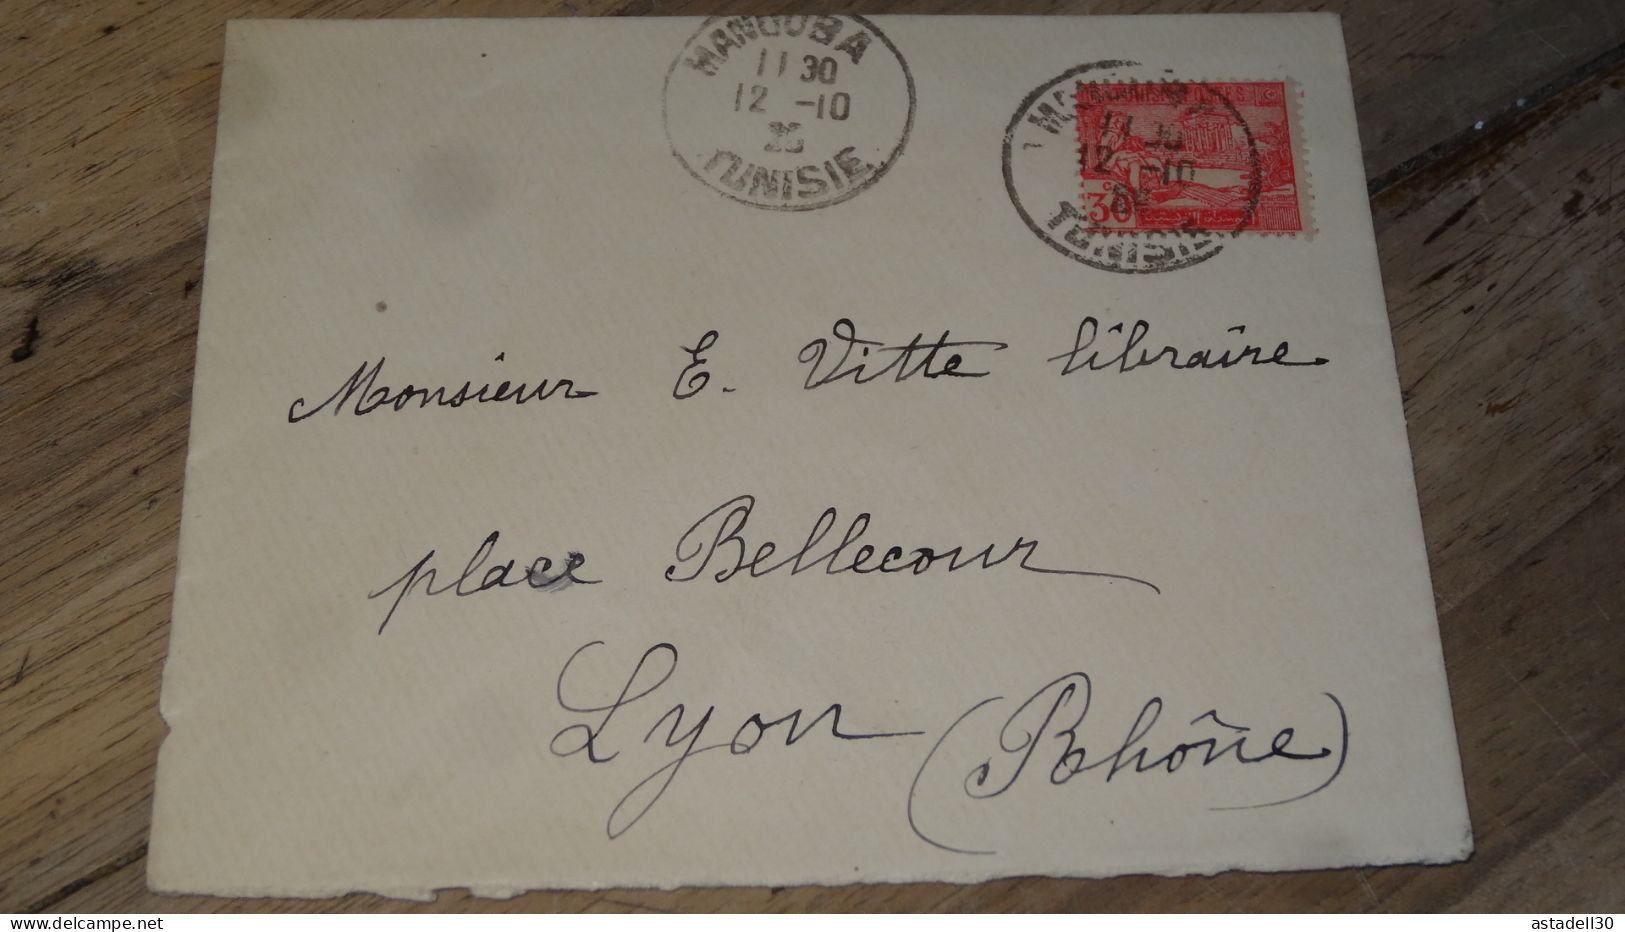 MANOUBA
11 30
12 -10
25
TUNISIE
11 30
12 -10
TUNISIE
POSTES
30
Monsieur E. Vitte libraire
place Bellecour
Lyon (Rhône)
delcampe.net
astadell30